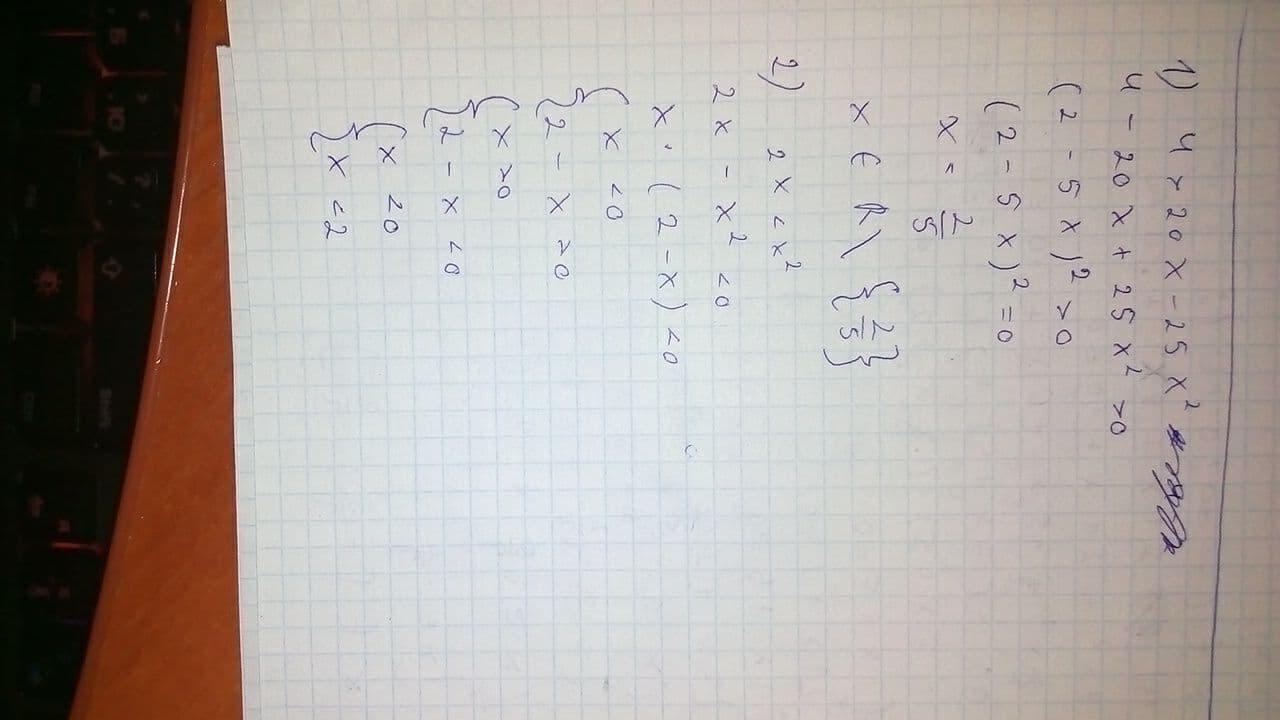 1) 4 > 20x - 25x²
4 - 20x + 25x² > 0
(2 - 5x)² > 0
(2 - 5x)² = 0
x = 2/5
x ∈ R \ {2/5}
2) 2x < x²
2x - x² < 0
x · (2 - x) < 0
{ x < 0
{ 2 - x > 0
{ x > 0
{ 2 - x < 0
{ x < 0
{ x < 2